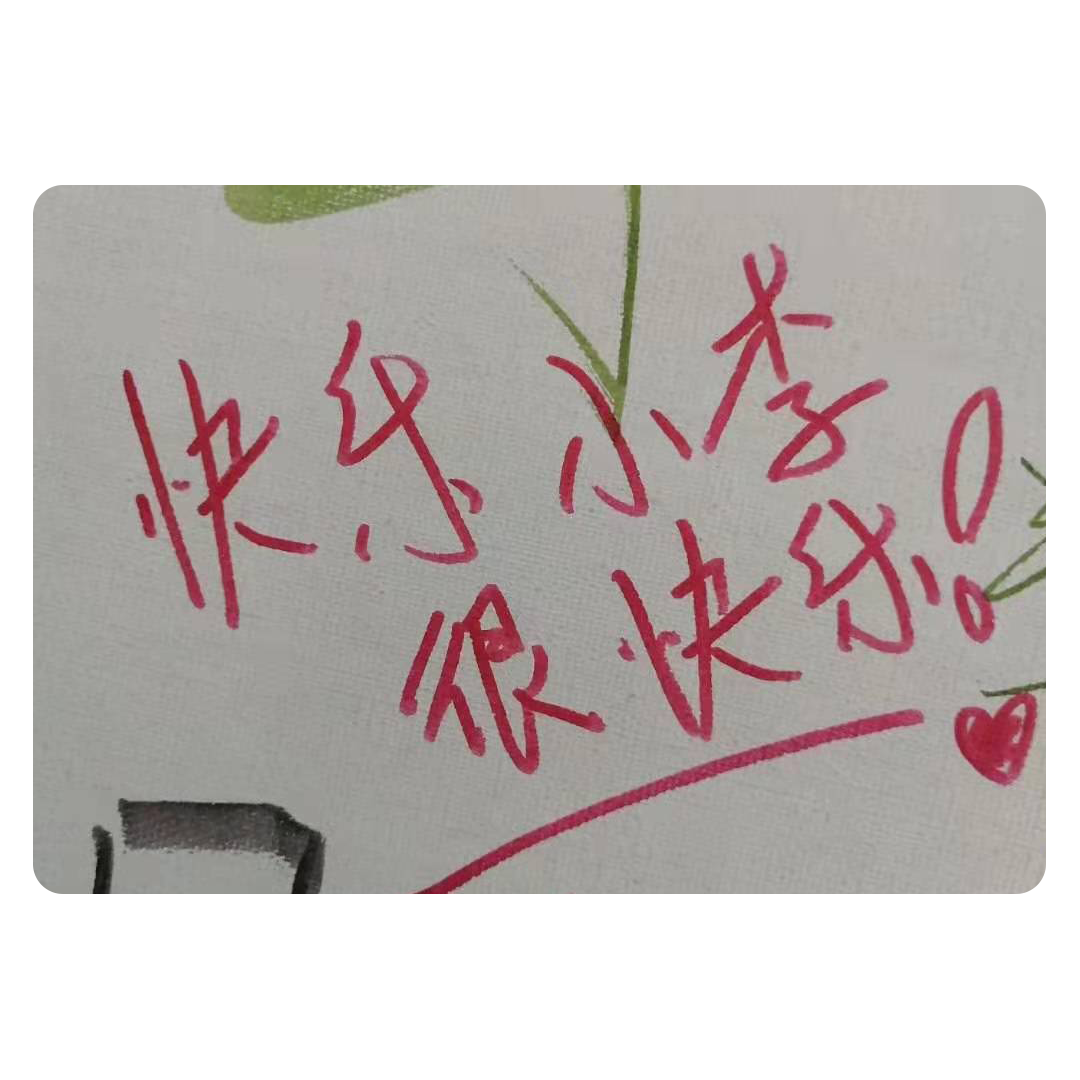 快乐小李
很快乐!